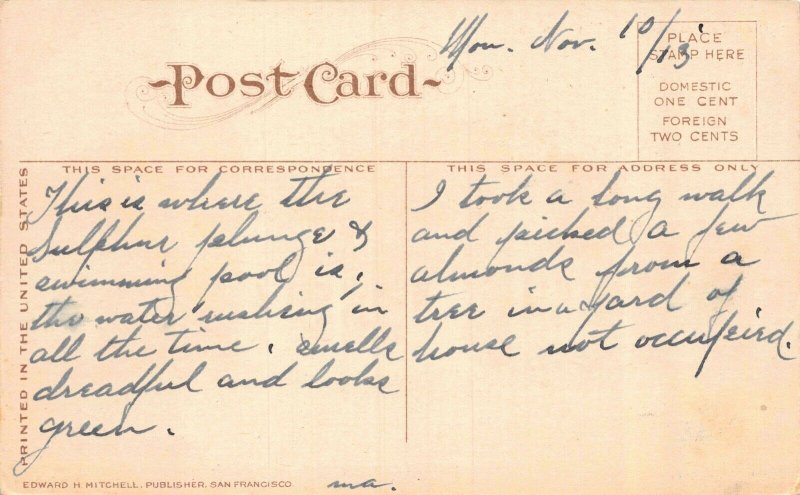 Mon. Nov. 10/13
PostCard
PLACE
STAMP HERE
DOMESTIC
ONE CENT
FOREIGN
TWO CENTS
THIS SPACE FOR CORRESPONDENCE
THIS SPACE FOR ADDRESS ONLY
PRINTED IN THE UNITED STATES
This is where the
Sulphur plunge &
swimming pool is,
the water rushing in
all the time. smells
dreadful and looks
green.
I took a long walk
and picked a few
almonds from a
tree in a yard of
house not occupeied.
EDWARD H. MITCHELL, PUBLISHER, SAN FRANCISCO.
ma.